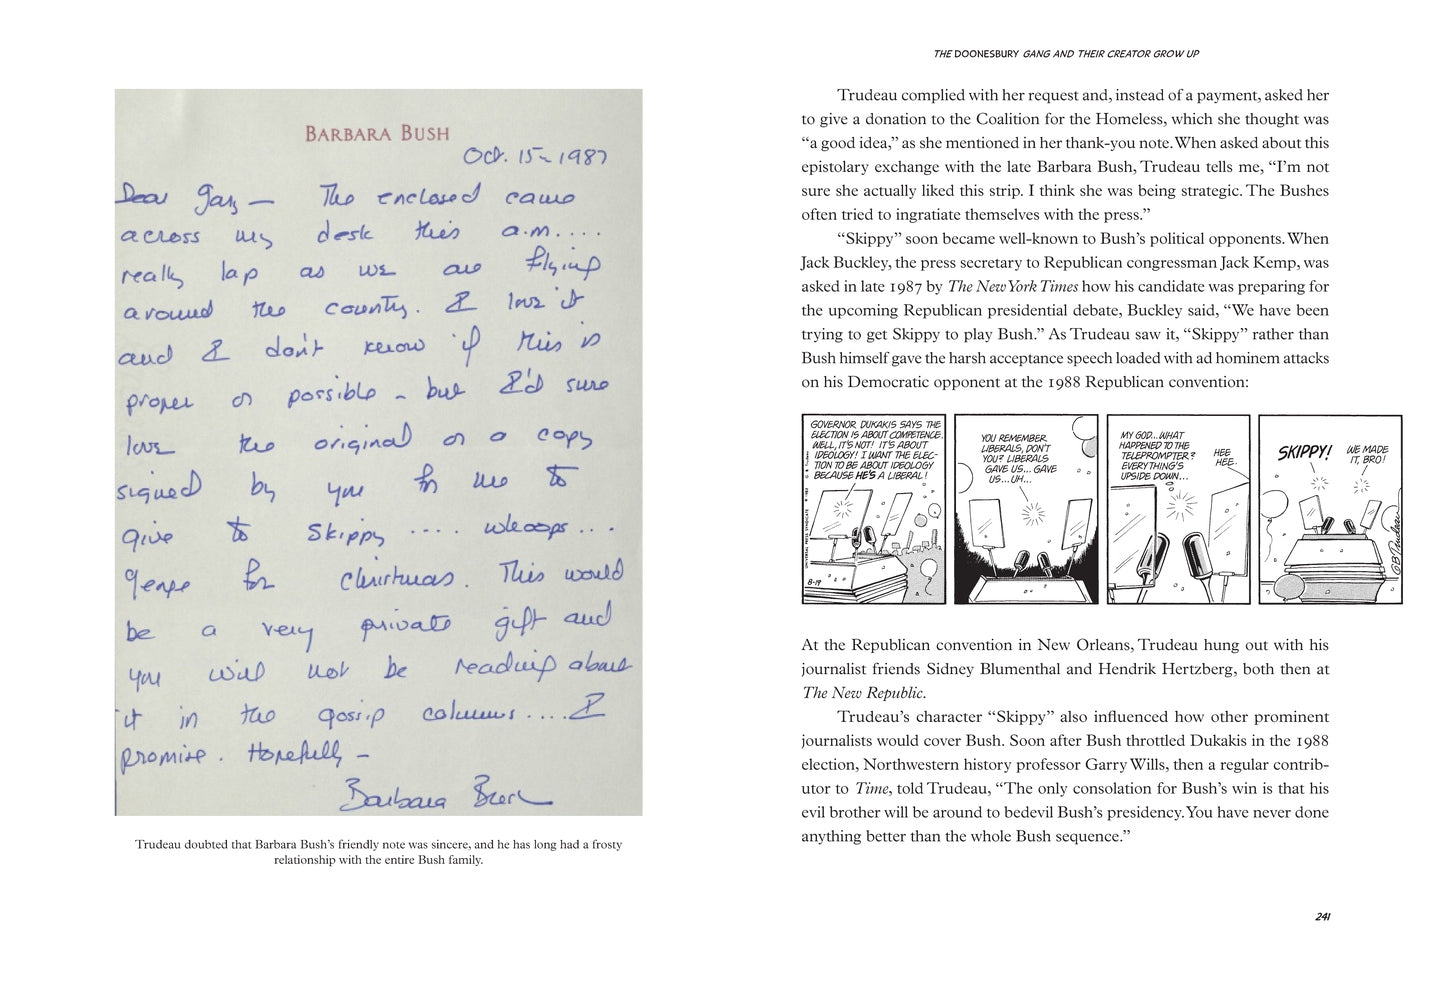 BARBARA BUSH
Oct. 15 – 1987
Dear Gary — The enclosed came
across my desk this a.m....
really lap as we are flying
around the country. I love it
and I don't know if this is
proper or possible – but I'd sure
love the original or a copy
signed by you for me to
give to Skippy .... whoops ...
George for Christmas. This would
be a very private gift and
you will not be reading about
it in the gossip columns .... I
promise. Hopefully –
Barbara Bush
Trudeau doubted that Barbara Bush's friendly note was sincere, and he has long had a frosty
relationship with the entire Bush family.
THE DOONESBURY GANG AND THEIR CREATOR GROW UP
Trudeau complied with her request and, instead of a payment, asked her
to give a donation to the Coalition for the Homeless, which she thought was
“a good idea,” as she mentioned in her thank-you note. When asked about this
epistolary exchange with the late Barbara Bush, Trudeau tells me, “I'm not
sure she actually liked this strip. I think she was being strategic. The Bushes
often tried to ingratiate themselves with the press.”
“Skippy” soon became well-known to Bush's political opponents. When
Jack Buckley, the press secretary to Republican congressman Jack Kemp, was
asked in late 1987 by The New York Times how his candidate was preparing for
the upcoming Republican presidential debate, Buckley said, “We have been
trying to get Skippy to play Bush.” As Trudeau saw it, “Skippy” rather than
Bush himself gave the harsh acceptance speech loaded with ad hominem attacks
on his Democratic opponent at the 1988 Republican convention:
GOVERNOR DUKAKIS SAYS THE
ELECTION IS ABOUT COMPETENCE.
WELL, IT'S NOT! IT'S ABOUT
IDEOLOGY! I WANT THE ELEC-
TION TO BE ABOUT IDEOLOGY
BECAUSE HE'S A LIBERAL!
8-19
YOU REMEMBER
LIBERALS, DON'T
YOU? LIBERALS
GAVE US... GAVE
US... UH...
MY GOD... WHAT
HAPPENED TO THE
TELEPROMPTER?
EVERYTHING'S
UPSIDE DOWN...
HEE
HEE.
SKIPPY!
WE MADE
IT, BRO!
GBTrudeau
At the Republican convention in New Orleans, Trudeau hung out with his
journalist friends Sidney Blumenthal and Hendrik Hertzberg, both then at
The New Republic.
Trudeau's character “Skippy” also influenced how other prominent
journalists would cover Bush. Soon after Bush throttled Dukakis in the 1988
election, Northwestern history professor Garry Wills, then a regular contrib-
utor to Time, told Trudeau, “The only consolation for Bush's win is that his
evil brother will be around to bedevil Bush's presidency. You have never done
anything better than the whole Bush sequence.”
241